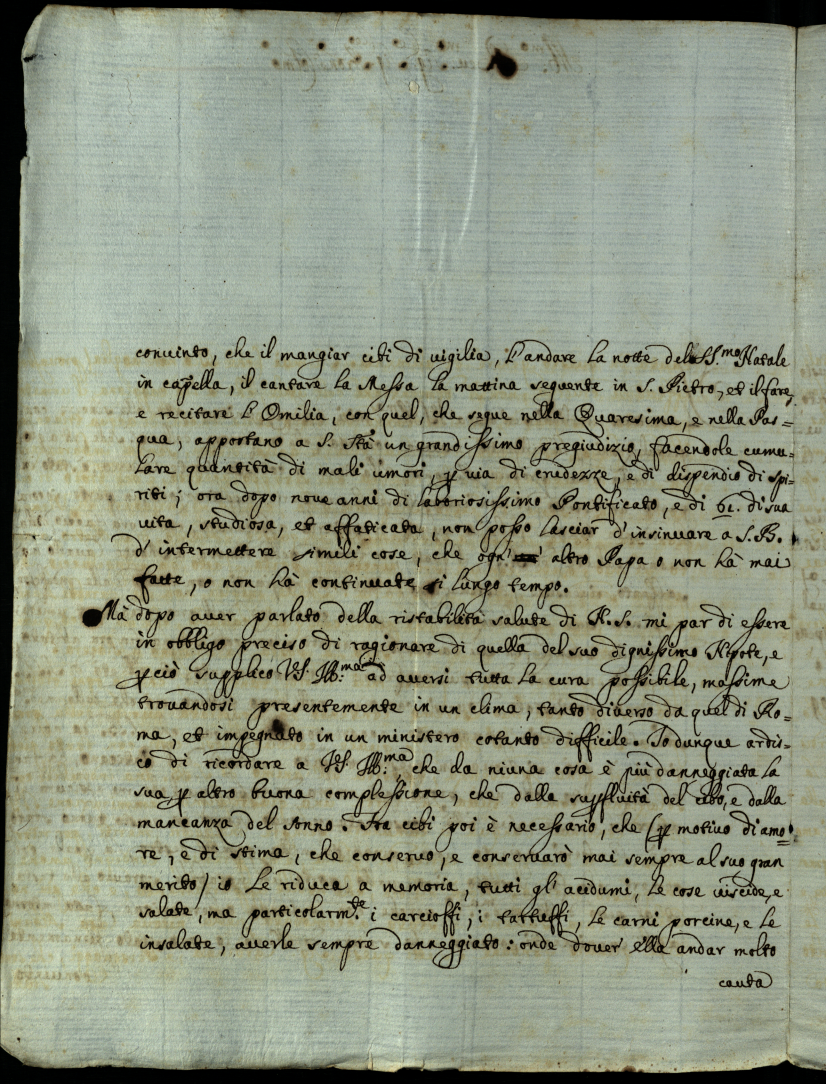 convinto, che il mangiar cibi di vigilia, l'andare la notte del SS.mo Natale
in capella, il cantare la Messa la mattina seguente in S. Pietro, et il fare,
e recitare l'Omilia, con quel, che segue nella Quaresima, e nella Pas=
qua, apportano a S. Stà un grandissimo pregiudizio, facendole cumu=
lare quantità di mali umori, p via di crudezze, e di dispendio di spi=
riti; ora dopo nove anni di laboriosissimo Pontificato, e di 61. di sua
vita, studiosa, et affaticata, non posso lasciar d'insinuare a S. B.
d'intermettere simili cose, che ogn' altro Papa o non hà mai
fatte, o non hà continuate si lungo tempo.
Mà dopo aver parlato della ristabilità salute di N. S. mi par di essere
in obbligo preciso di ragionare di quella del suo dignissimo Nipote, e
pciò supplico VS. Ill:ma ad aversi tutta la cura possibile, massime
trovandosi presentemente in un clima, tanto diverso da quel di Ro=
ma, et impegnato in un ministero cotanto difficile. Io dunque ardis=
co di ricordare a VS. Ill:ma, che da niuna cosa è più danneggiata la
sua p altro buona complessione, che dalla suppfluità del cibo, e dalla
mancanza del sonno. Fra cibi poi è necessario, che (p motivo di amo=
re, e di stima, che conservo, e conservarò mai sempre al suo gran
merito) io le riduca a memoria, tutti gl'acidumi, le cose viscide, e
salate, ma particolarm.te i carcioffi, i tartuffi, le carni porcine, e le
insalate, averle sempre danneggiato: onde dover ella andar molto
cauta